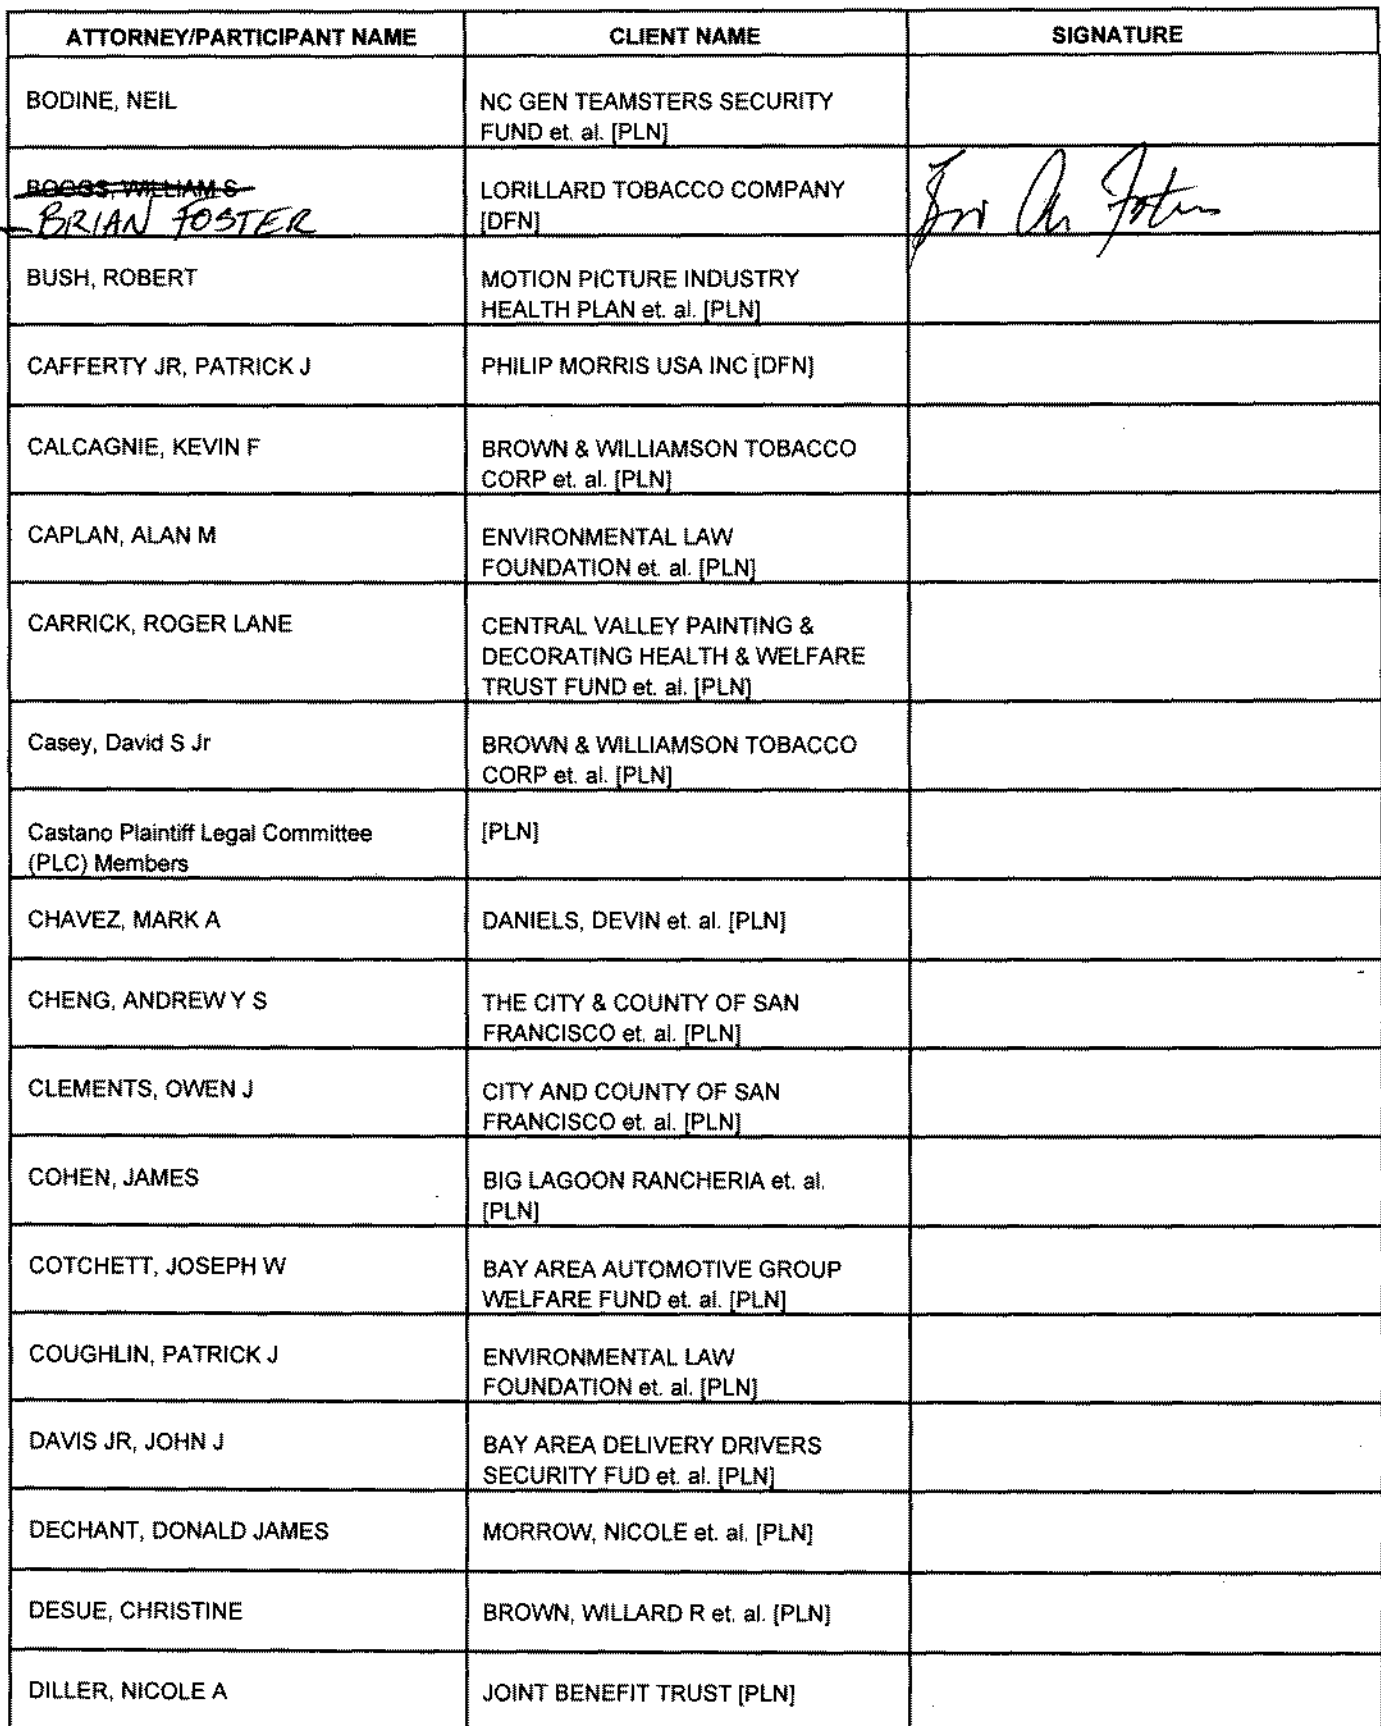 ATTORNEY/PARTICIPANT NAME CLIENT NAME SIGNATURE
BODINE, NEIL NC GEN TEAMSTERS SECURITY
FUND et. al. [PLN]
BOGGS, WILLIAM S LORILLARD TOBACCO COMPANY
BRIAN FOSTER [DFN]
BUSH, ROBERT MOTION PICTURE INDUSTRY
HEALTH PLAN et. al. [PLN]
CAFFERTY JR, PATRICK J PHILIP MORRIS USA INC [DFN]
CALCAGNIE, KEVIN F BROWN & WILLIAMSON TOBACCO
CORP et. al. [PLN]
CAPLAN, ALAN M ENVIRONMENTAL LAW
FOUNDATION et. al. [PLN]
CARRICK, ROGER LANE CENTRAL VALLEY PAINTING &
DECORATING HEALTH & WELFARE
TRUST FUND et. al. [PLN]
Casey, David S Jr BROWN & WILLIAMSON TOBACCO
CORP et. al. [PLN]
Castano Plaintiff Legal Committee [PLN]
(PLC) Members
CHAVEZ, MARK A DANIELS, DEVIN et. al. [PLN]
CHENG, ANDREW Y S THE CITY & COUNTY OF SAN
FRANCISCO et. al. [PLN]
CLEMENTS, OWEN J CITY AND COUNTY OF SAN
FRANCISCO et. al. [PLN]
COHEN, JAMES BIG LAGOON RANCHERIA et. al.
[PLN]
COTCHETT, JOSEPH W BAY AREA AUTOMOTIVE GROUP
WELFARE FUND et. al. [PLN]
COUGHLIN, PATRICK J ENVIRONMENTAL LAW
FOUNDATION et. al. [PLN]
DAVIS JR, JOHN J BAY AREA DELIVERY DRIVERS
SECURITY FUD et. al. [PLN]
DECHANT, DONALD JAMES MORROW, NICOLE et. al. [PLN]
DESUE, CHRISTINE BROWN, WILLARD R et. al. [PLN]
DILLER, NICOLE A JOINT BENEFIT TRUST [PLN]